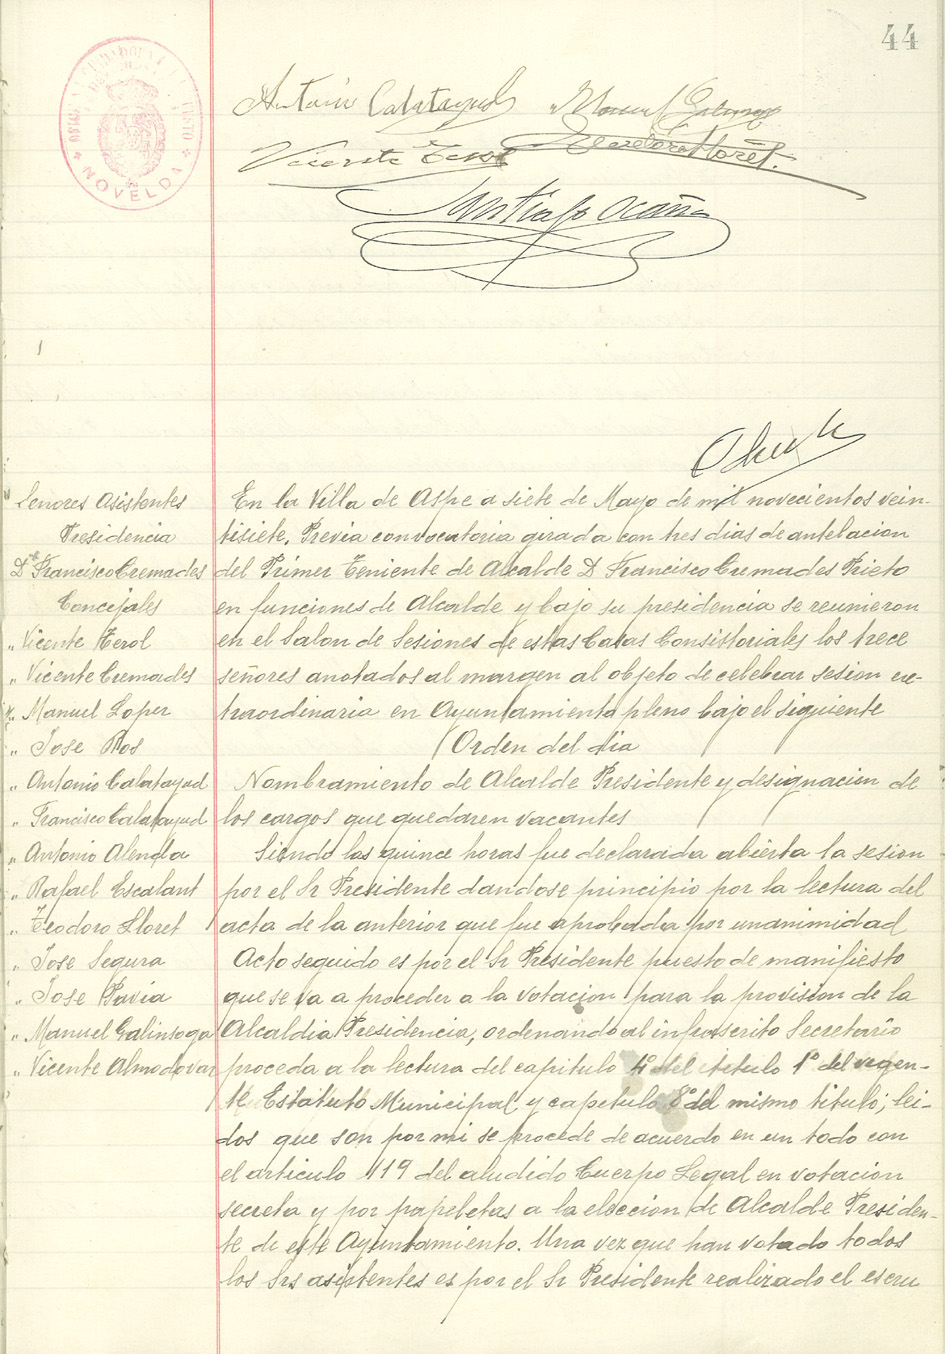 44
NOVELDA
Antonio Calatayud
Manuel Galinsoga
Vicente Terol
Teodoro Lloret
Santiago Ocaña
Señores Asistentes
Presidencia
D. Francisco Cremades
Concejales
" Vicente Terol
" Vicente Cremades
" Manuel Lopez
" Jose Ros
" Antonio Calatayud
" Francisco Calatayud
" Antonio Alenda
" Rafael Escalant
" Teodoro Lloret
" Jose Segura
" Jose Pavia
" Manuel Galinsoga
" Vicente Almodovar
En la Villa de Aspe a siete de Mayo de mil novecientos vein-
tisiete. Previa convocatoria girada con tres dias de antelacion
del Primer Teniente de Alcalde D Francisco Cremades Prieto
en funciones de Alcalde y bajo su presidencia se reunieron
en el Salon de Sesiones de estas Casas Consistoriales los trece
señores anotados al margen al objeto de celebrar sesion ex-
traordinaria en Ayuntamiento pleno bajo el siguiente
Orden del dia
Nombramiento de Alcalde Presidente y designacion de
los cargos que quedaren vacantes
Siendo las quince horas fue declarada abierta la sesion
por el Sr Presidente dandose principio por la lectura del
acta de la anterior que fue aprobada por unanimidad
Acto seguido es por el Sr Presidente puesto de manifiesto
que se va a proceder a la votacion para la provision de la
Alcaldia Presidencia, ordenando al infrascrito Secretario
proceda a la lectura del capitulo 4º del titulo 1º del vigen-
te Estatuto Municipal y capetulo 8º del mismo titulo; lei-
dos que son por mi se procede de acuerdo en un todo con
el articulo 119 del aludido Cuerpo Legal en votacion
secreta y por papeletas a la eleccion de Alcalde Presiden-
te de este Ayuntamiento. Una vez que han votado todos
los Srs asistentes es por el Sr Presidente realizado el escru